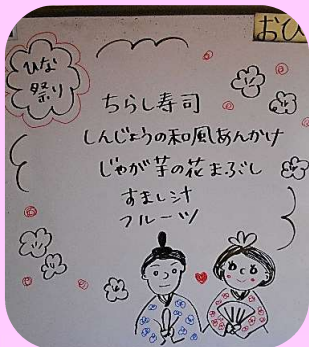 ひな
祭り
おひ
ちらし寿司
しんじょうの和風あんかけ
じゃが芋の花まぶし
すまし汁
フルーツ